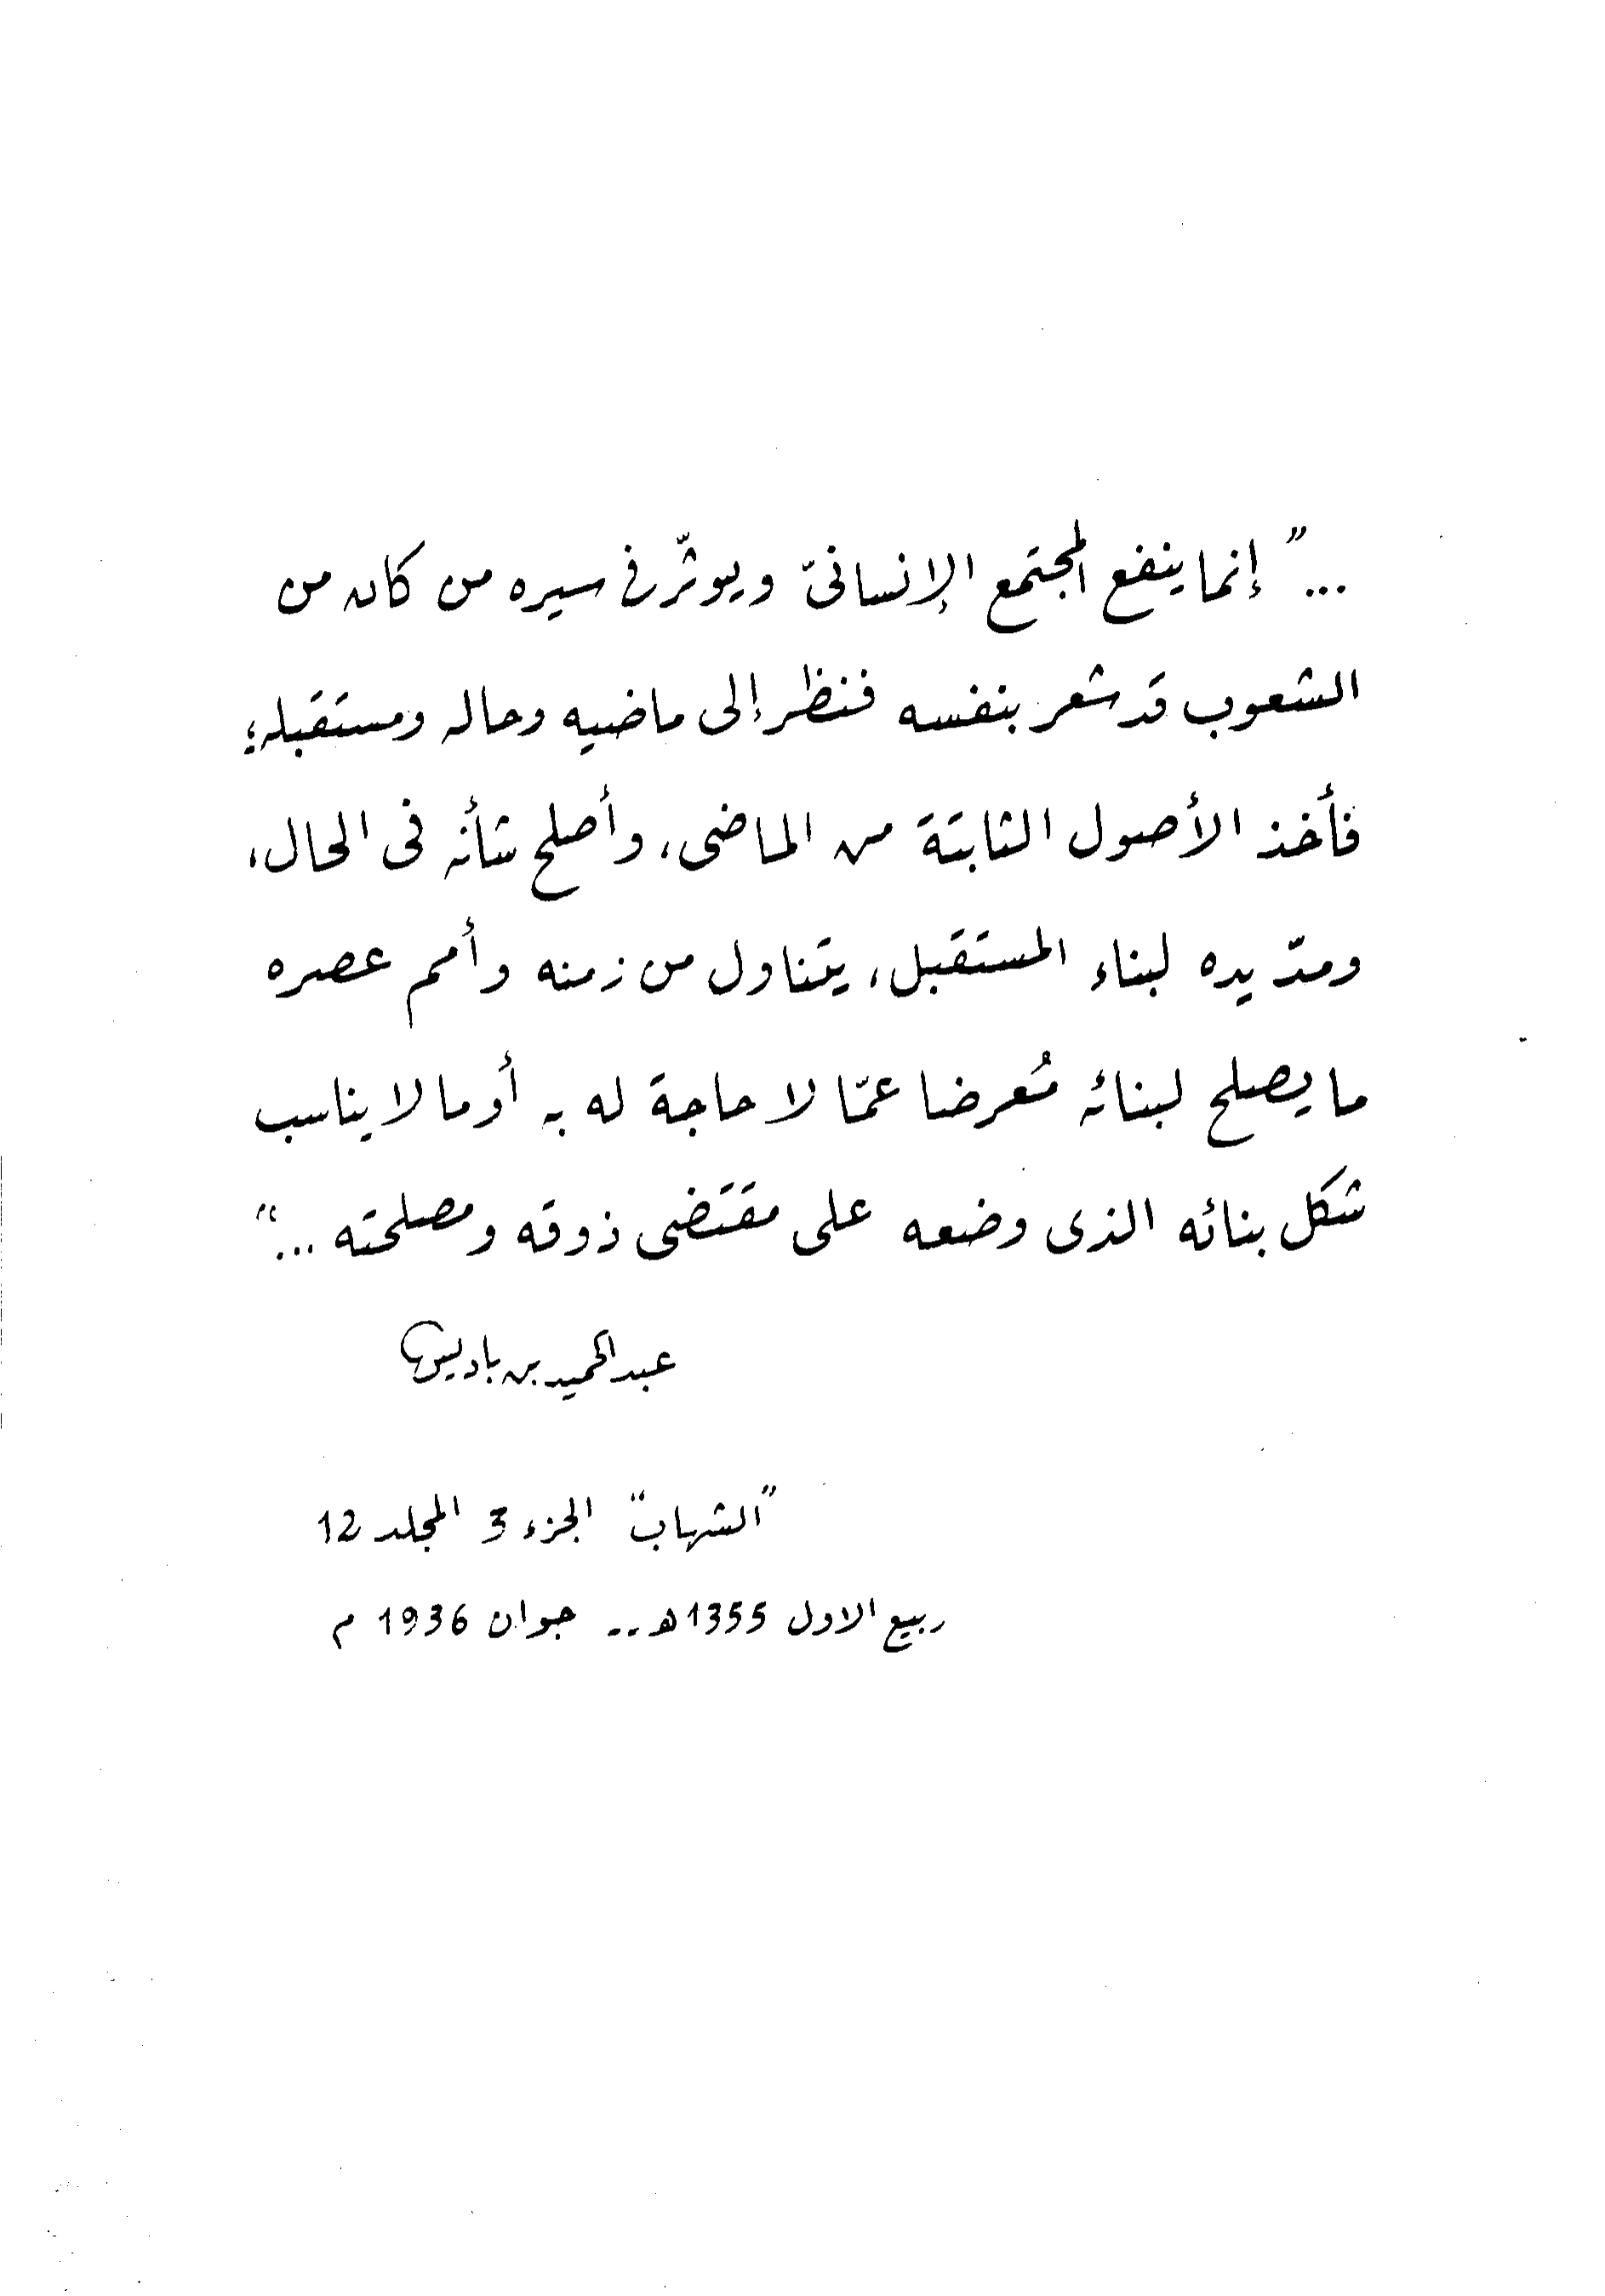 ..." إنما ينفع المجتمع الإنسانىّ ويوثّر فى سيره من كان من
الشعوب قد شعر بنفسه فنظر إلى ماضيه وحاله ومستقبله؛
فأخذ الأصول الثابتة من الماضى، وأصلح شأنه فى الحال،
ومدّ يده لبناء المستقبل، يتناول من زمنه وأمم عصره
ما يصلح لبنائه مُعرضا عمّا لا حاجة له به أو ما لا يناسب
شكل بنائه الذى وضعه على مقتضى ذوقه ومصلحته ..."
عبد الحميد بن باديس
"الشهاب" الجزء 3 المجلد 12
ربيع الاول 1355 هـ -- جوان 1936 م